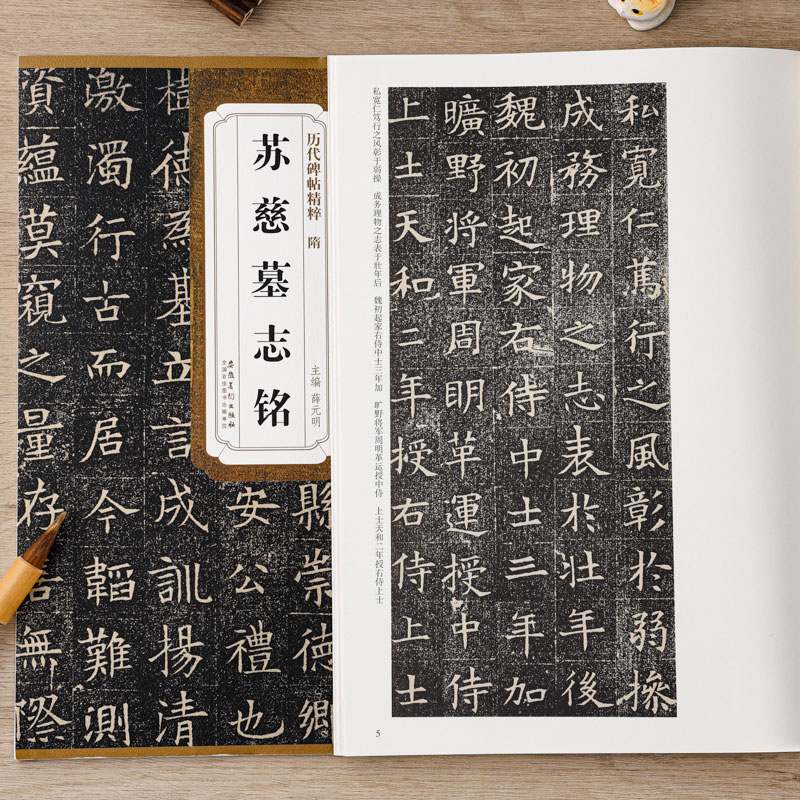 历代碑帖精粹 隋
苏慈墓志铭
主编 薛元明
安徽美术出版社
全国百佳图书出版单位
縣崇德鄉
安公禮也
樹德為基立言成訓揚清
激濁行古而居今韜難測
資蘊莫窺之量存無際
私寬仁篤行之風彰於弱操
成務理物之志表於壯年後
魏初起家右侍中士三年加
曠野將軍周明革運授中侍
上士天和二年授右侍上士
私宽仁笃行之风彰于弱操 成务理物之志表于壮年后 魏初起家右侍中士三年加 旷野将军周明革运授中侍 上士天和二年授右侍上士
5